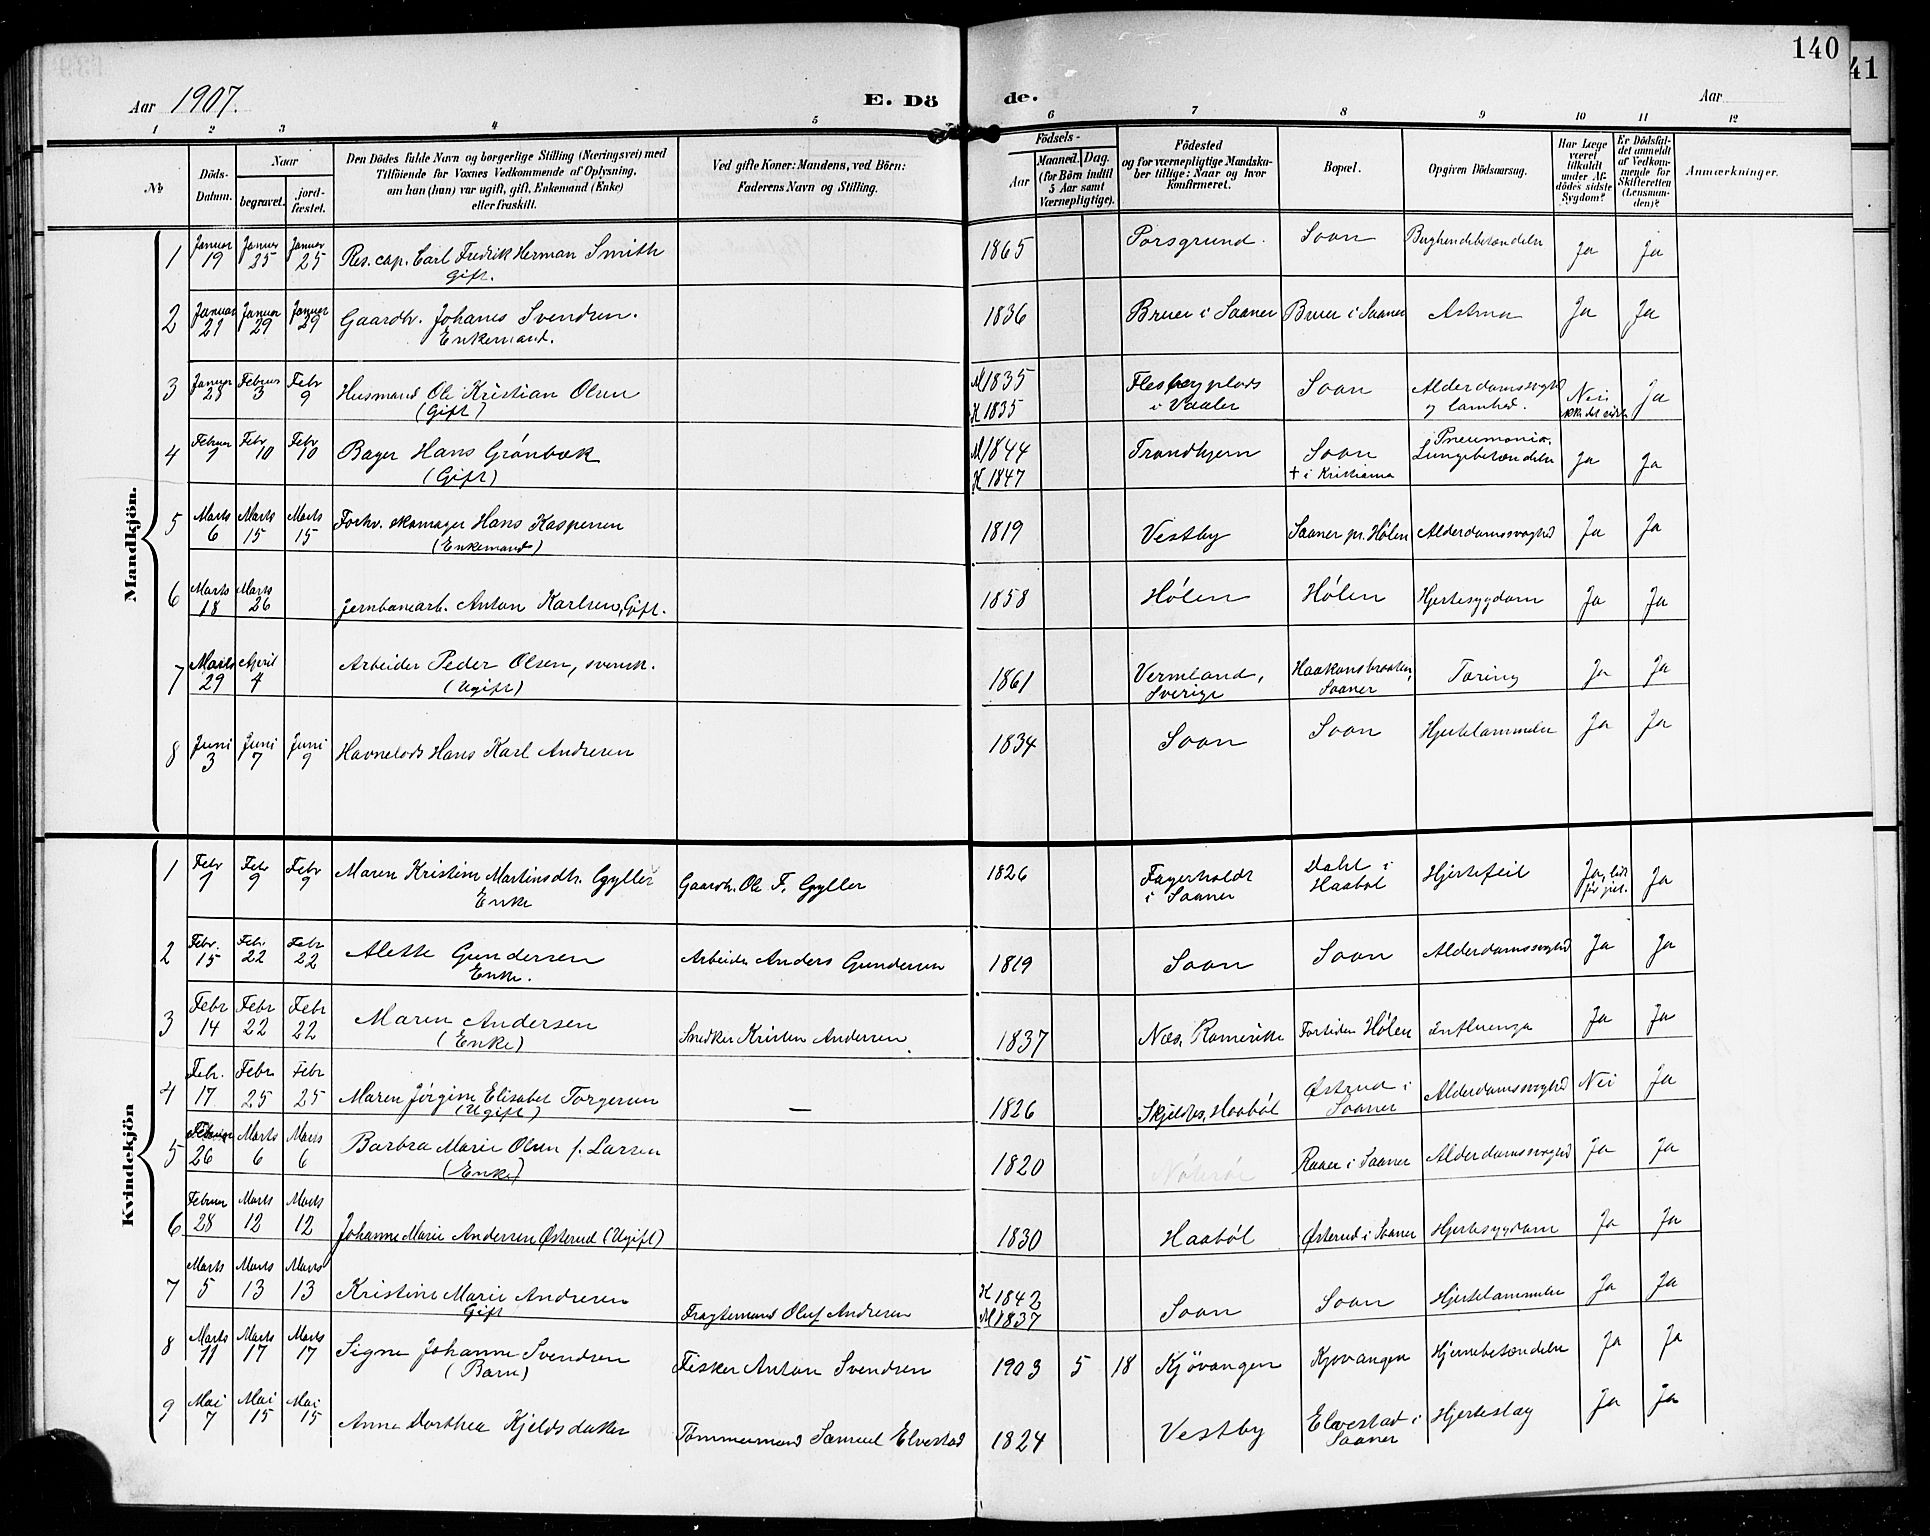 140
41
Aar 1907.
E. Dö de.
Aar
1 2 3 4 5 6 7 8 9 10 11 12
No
Döds-Datum.
Naar
begravet.
jord-fæstet.
Den Dödes fulde Navn og borgerlige Stilling (Næringsvei) med
Tilföiende for Voxnes Vedkommende af Oplysning,
om han (hun) var ugift, gift, Enkemand (Enke)
eller fraskilt.
Ved gifte Koner: Mandens, ved Börn:
Faderens Navn og Stilling.
Födsels-
Aar
Maaned. Dag.
(for Börn indtil
5 Aar samt
Værnepligtige).
Födested
og for værnepligtige Mandska-
ber tillige: Naar og hvor
konfirmeret.
Bopæl.
Opgiven Dödsaarsag.
Har Læge
været
tilkaldt
under Af-
dödes sidste
Sygdom?
Er Dödsfal-
det anmeldt
af Vedkom-
mende for
Skifteretten
(Lensman-
den)?
Anmærkninger.
Mandkjön.
1 Januar 19 Januar 25 Januar 25 Res. cap. Carl Fredrik Herman Smith 1865 Porsgrund. Soon Bughindebetændelse Ja Ja
Gift.
2 Januar 21 Januar 29 Januar 29 Gaardbr. Johanes Svendsen. 1836 Bruer i Saaner Bruer i Saaner Astma Ja Ja
Enkemand.
3 Januar 28 Februar 3 Febr 9 Husmand Ole Kristian Olsen M 1835 Flesbergplads Soon Alderdomssvaghed Nei Ja
(Gift) K 1835 i Vaaler og lamhed. ikke det sidste
4 Februar 1 Febr 10 Febr 10 Bager Hans Grönbæk M 1844 Trondhjem Soon Pneumonia, Ja Ja
(Gift) K 1847 † i Kristiania Lungebetændelse
5 Marts 6 Marts 15 Marts 15 Forhv. skomager Hans Kaspersen 1819 Vestby Saaner pr. Hölen Alderdomssvaghed Ja Ja
(Enkemand)
6 Marts 18 Marts 26 Jernbanearb. Anton Karlsen, Gift. 1858 Hölen Hölen Hjertesygdom Ja Ja
7 Marts 29 April 4 Arbeider Peder Olsen, svensk. 1861 Vermland, Haakonsbraaten, Tæring Ja Ja
(Ugift) Sverige Saaner
8 Juni 3 Juni 7 Juni 9 Havnelods Hans Karl Andresen 1834 Soon Soon Hjertelammelse Ja Ja
Kvindekjön
1 Febr 1 Febr 9 Febr 9 Maren Kristine Martinsdtr. Gyller Gaardbr. Ole F. Gyller 1826 Fagerholdt Dahl i Hjertefeil Ja, lidt Ja
Enke i Saaner Haaböl
2 Febr. 15 Febr. 22 Febr 22 Alette Gundersen Arbeider Anders Gundersen 1819 Soon Soon Alderdomssvaghed Ja Ja
Enke.
3 Febr 14 Febr 22 Febr 22 Maren Andersen Snedker Kristen Andersen 1837 Næs, Romerike Fortiden Hölen Influenza Ja Ja
(Enke)
4 Febr. 17 Febr 25 Febr 25 Maren Jörgine Elisabet Torgersen — 1826 Skjelbr, Haaböl Östrud i Alderdomssvaghed Nei Ja
(Ugift) Saaner
5 Februar 26 Marts 6 Marts 6 Barbra Marie Olsen f. Larsen 1820 Raaer i Saaner Alderdomssvaghed Ja Ja
(Enke)
6 Februar 28 Marts 12 Marts 12 Johanne Marie Andersen Österud (Ugift) 1830 Haaböl Österud i Saaner Hjertesygdom Ja Ja
7 Marts 5 Marts 13 Marts 13 Kristine Marie Andresen Fragtemand Oluf Andresen K 1842 Soon Soon Hjertelammelse Ja Ja
Gift M 1837
8 Marts 11 Marts 17 Marts 17 Signe Johanne Svendsen Fisker Anton Svendsen 1903 5 18 Kjövangen Kjövangen Hjernebetændelse Ja Ja
(Barn)
9 Mai 7 Mai 15 Mai 15 Anne Dorthea Kjeldsdatter Tömmermand Samuel Elvestad 1824 Vestby Elvestad i Hjerteslag Ja Ja
Saaner